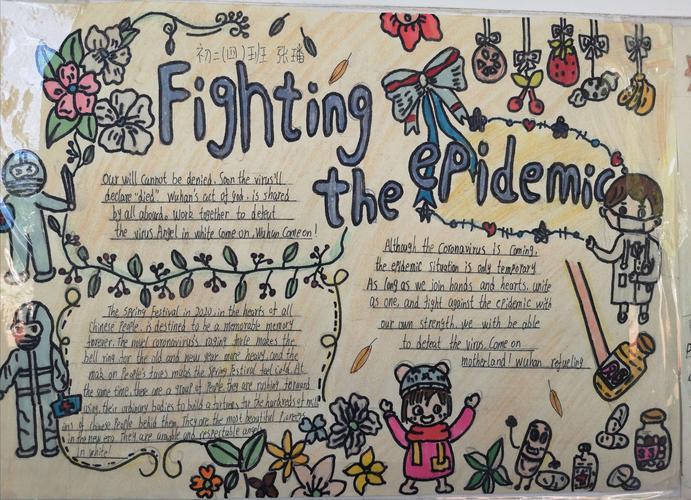 初二(四)班 张璠
Fighting
the epidemic
Our will cannot be denied. Soon the virus'll
declare "died". Wuhan's act of god. is shared
by all aboard. Work together to defeat
the virus Angel in white come on. Wuhan Come on!
Although the Coronavirus is coming.
the epidemic situation is only temporary
As long as we join hands and hearts, unite
as one, and fight against the epidemic with
our own strength, we with be able
to defeat the virus. Come on
motherland! Wuhan refueling
The Spring Festival in 2020, in the hearts of all
Chinese People, is destined to be a memorable memory
forever. The novel coronavirus's raging force makes the
bell ring for the old and new year more heavy, and the
mask on People's faces makes the Spring Festival feel cold. At
the same time, there are a group of People. they are rushing forward
using their ordinary bodies to build a fortress for the hundreds of mill
ions of Chinese People behind them. They are the most beautiful Pioneers
in the new era. They are amiable and respectable angel
in white!